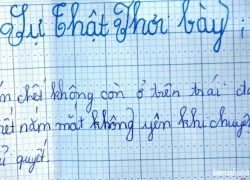 Sự Thật Phơi bày,
chết không còn ở trên trái
năm mắt không yên khi chuyện
quyết